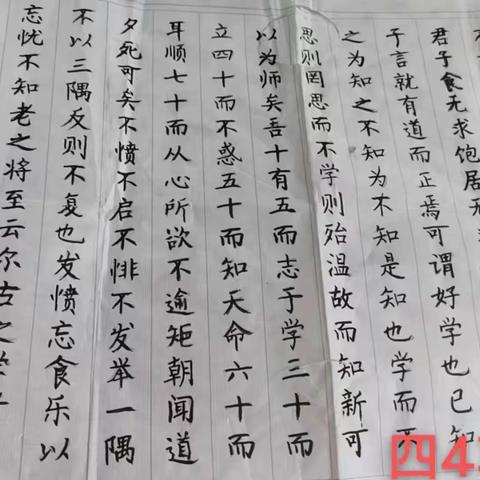 君子食无求饱居无
于言就有道而正焉可谓好学也已知
之为知之不知为不知是知也学而
思则罔思而不学则殆温故而知新可
以为师矣吾十有五而志于学三十而
立四十而不惑五十而知天命六十而
耳顺七十而从心所欲不逾矩朝闻道
夕死可矣不愤不启不悱不发举一隅
不以三隅反则不复也发愤忘食乐以
忘忧不知老之将至云尔古之学
四4